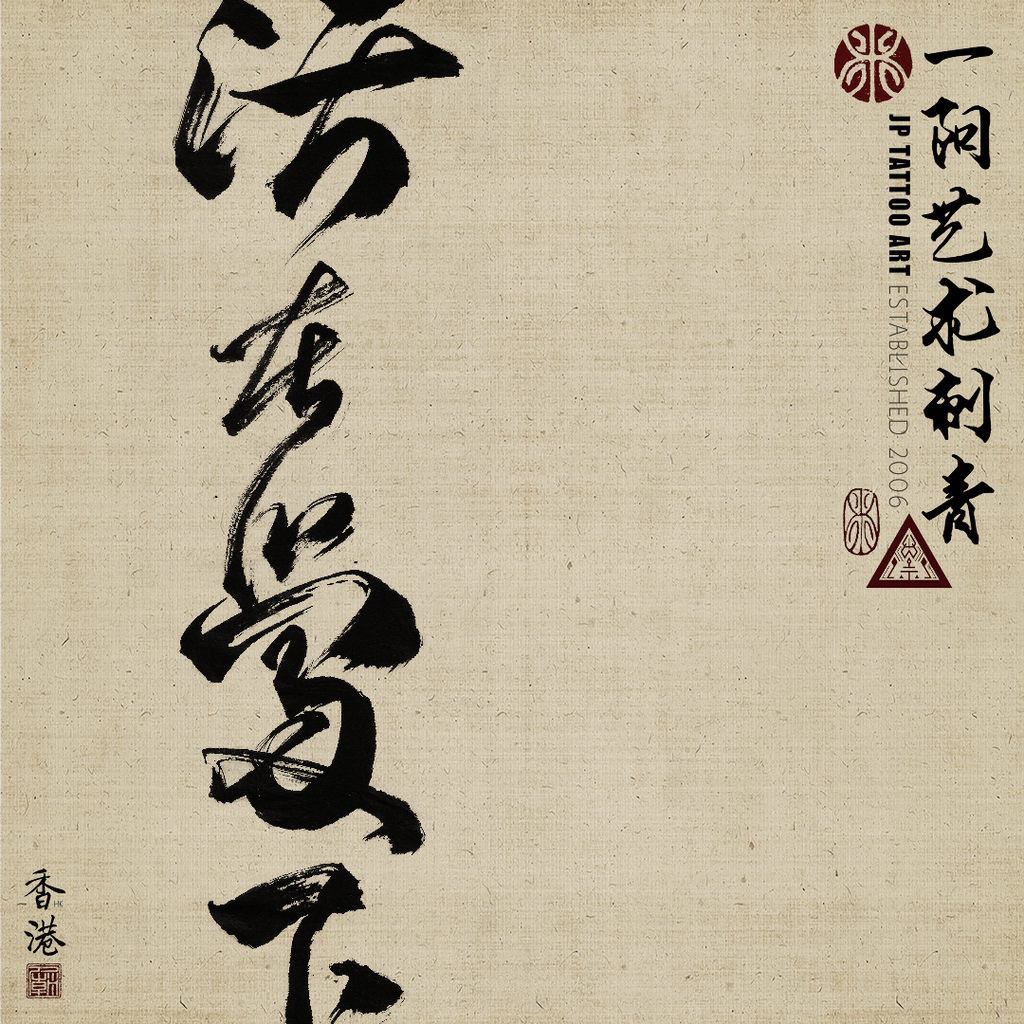 一阳艺术刺青
JP TATTOO ART ESTABLISHED 2006
活在當下
香港
HK